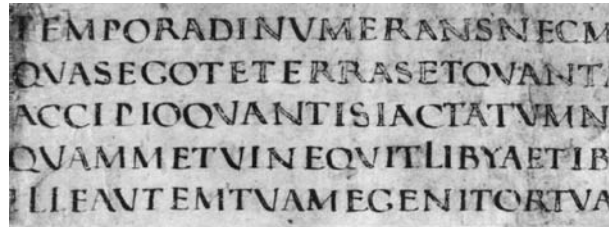 TEMPORADINVMERANSNECM
QVASEGOTETERRASETQVANT
ACCIPIOQVANTISIACTATVMN
QVAMMETVINEQVITLIBYAETIB
ILLEAVTEMTVAMEGENITORTVA